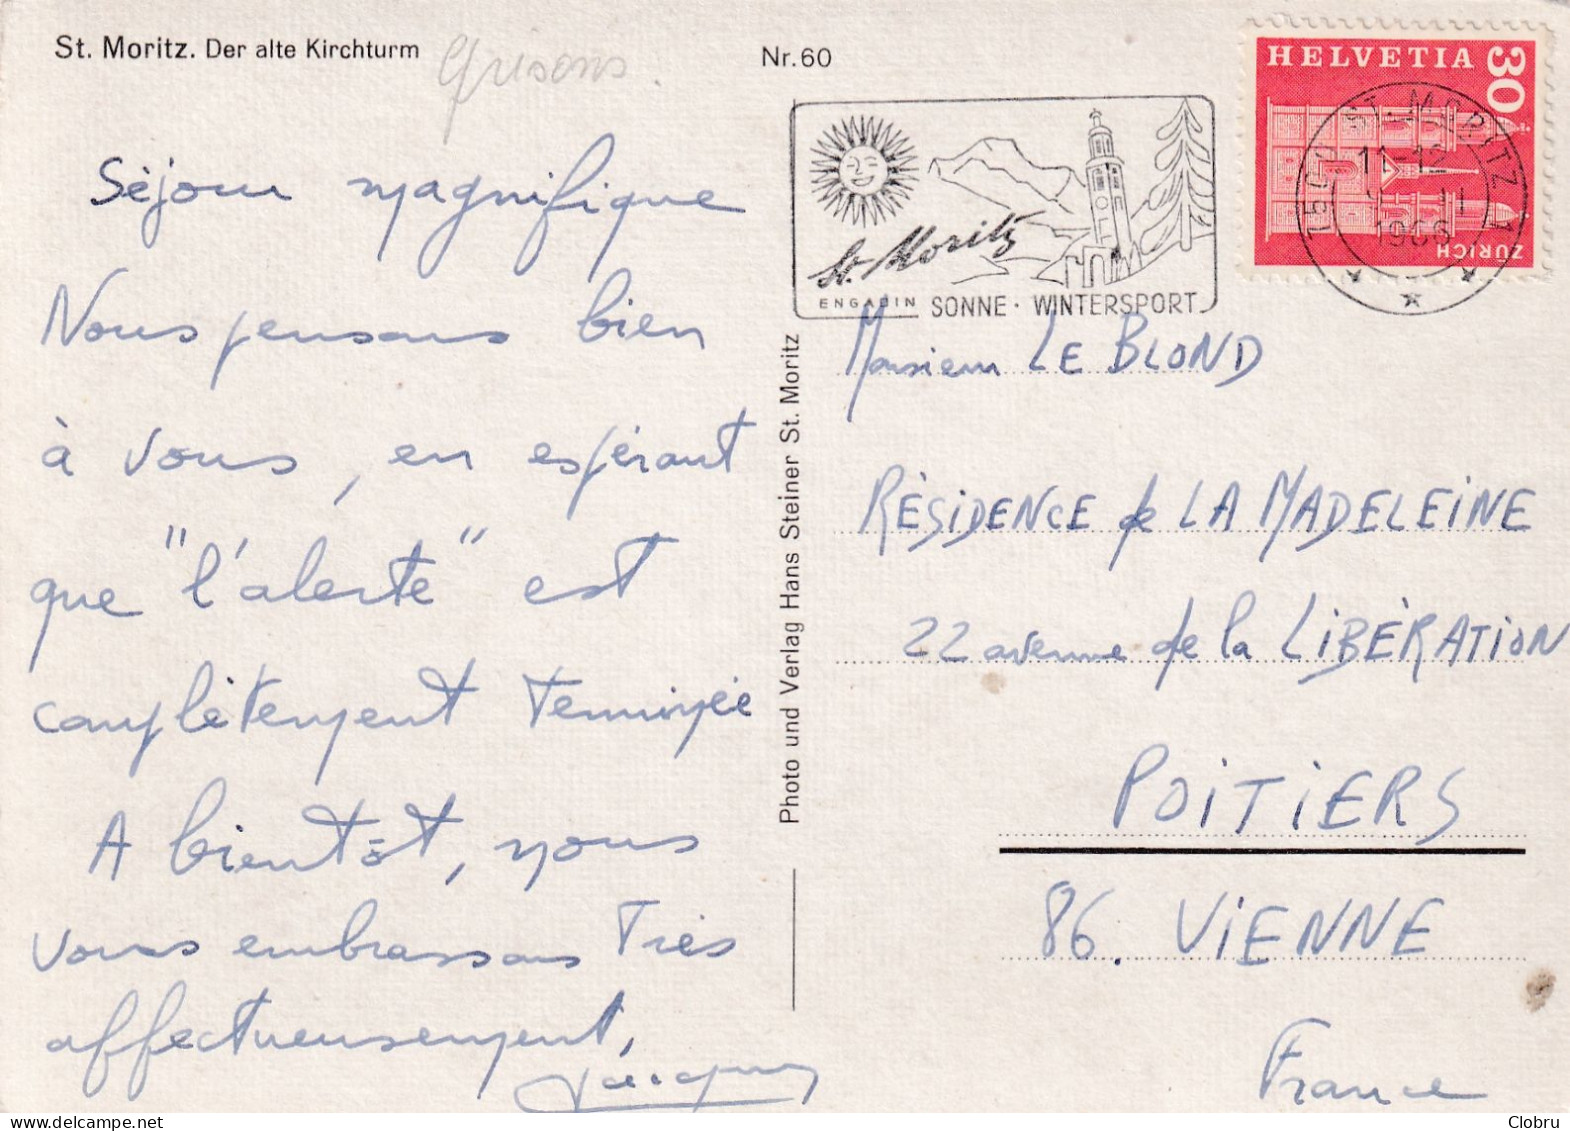 St. Moritz. Der alte Kirchturm
Grisons.
Nr. 60
HELVETIA 30
ZÜRICH
7500 ST. MORITZ 1
11-12
1966
St. Moritz
ENGADIN SONNE · WINTERSPORT
Séjour magnifique
Nous pensons bien
à vous, en espérant
que "l'alerte" est
complètement terminée
A bientôt, nous
vous embrassons Très
affectueusement,
Jacques
Photo und Verlag Hans Steiner St. Moritz
Monsieur LE BLOND
RÉSIDENCE de LA MADELEINE
22 avenue de la LIBÉRATION
POITIERS
86. VIENNE
France
Clobru